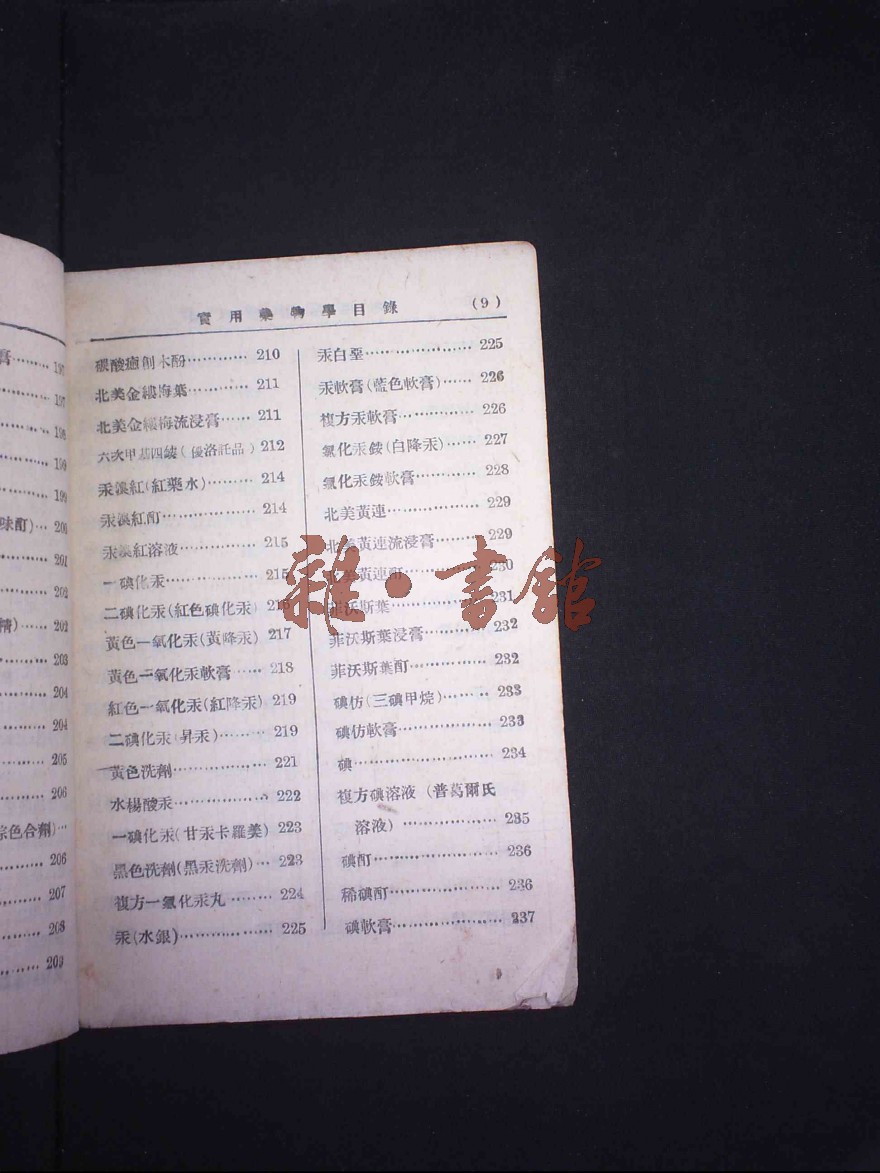 膏……… 19
197
198
199
199
味酊)… 200
201
202
精)…… 202
203
204
204
205
206
棕色合劑)…
206
207
208
209
實用藥物學目錄 (9)
碳酸癒創木酚………… 210
北美金縷梅葉………… 211
北美金縷梅流浸膏…… 211
六次甲基四䤄(優洛託品) 212
汞溴紅(紅藥水)……… 214
汞溴紅酊……………… 214
汞溴紅溶液…………… 215
一碘化汞……………… 215
二碘化汞(紅色碘化汞) 216
黃色一氧化汞(黃降汞) 217
黃色一氧化汞軟膏…… 218
紅色一氧化汞(紅降汞) 219
二碘化汞(昇汞)……… 219
黃色洗劑……………… 221
水楊酸汞……………… 222
一碘化汞(甘汞卡羅美) 223
黑色洗劑(黑汞洗劑)… 223
複方一氯化汞丸……… 224
汞(水銀)……………… 225
汞白堊………………… 225
汞軟膏(藍色軟膏)…… 226
複方汞軟膏…………… 226
氯化汞銨(白降汞)…… 227
氯化汞銨軟膏………… 228
北美黃連……………… 229
北美黃連流浸膏……… 229
北美黃連酊…………… 230
菲沃斯葉……………… 231
菲沃斯葉浸膏………… 232
菲沃斯葉酊…………… 232
碘仿(三碘甲烷)……… 233
碘仿軟膏……………… 233
碘……………………… 234
複方碘溶液(普葛爾氏
溶液)………………… 235
碘酊…………………… 236
稀碘酊………………… 236
碘軟膏………………… 237
雜·書館